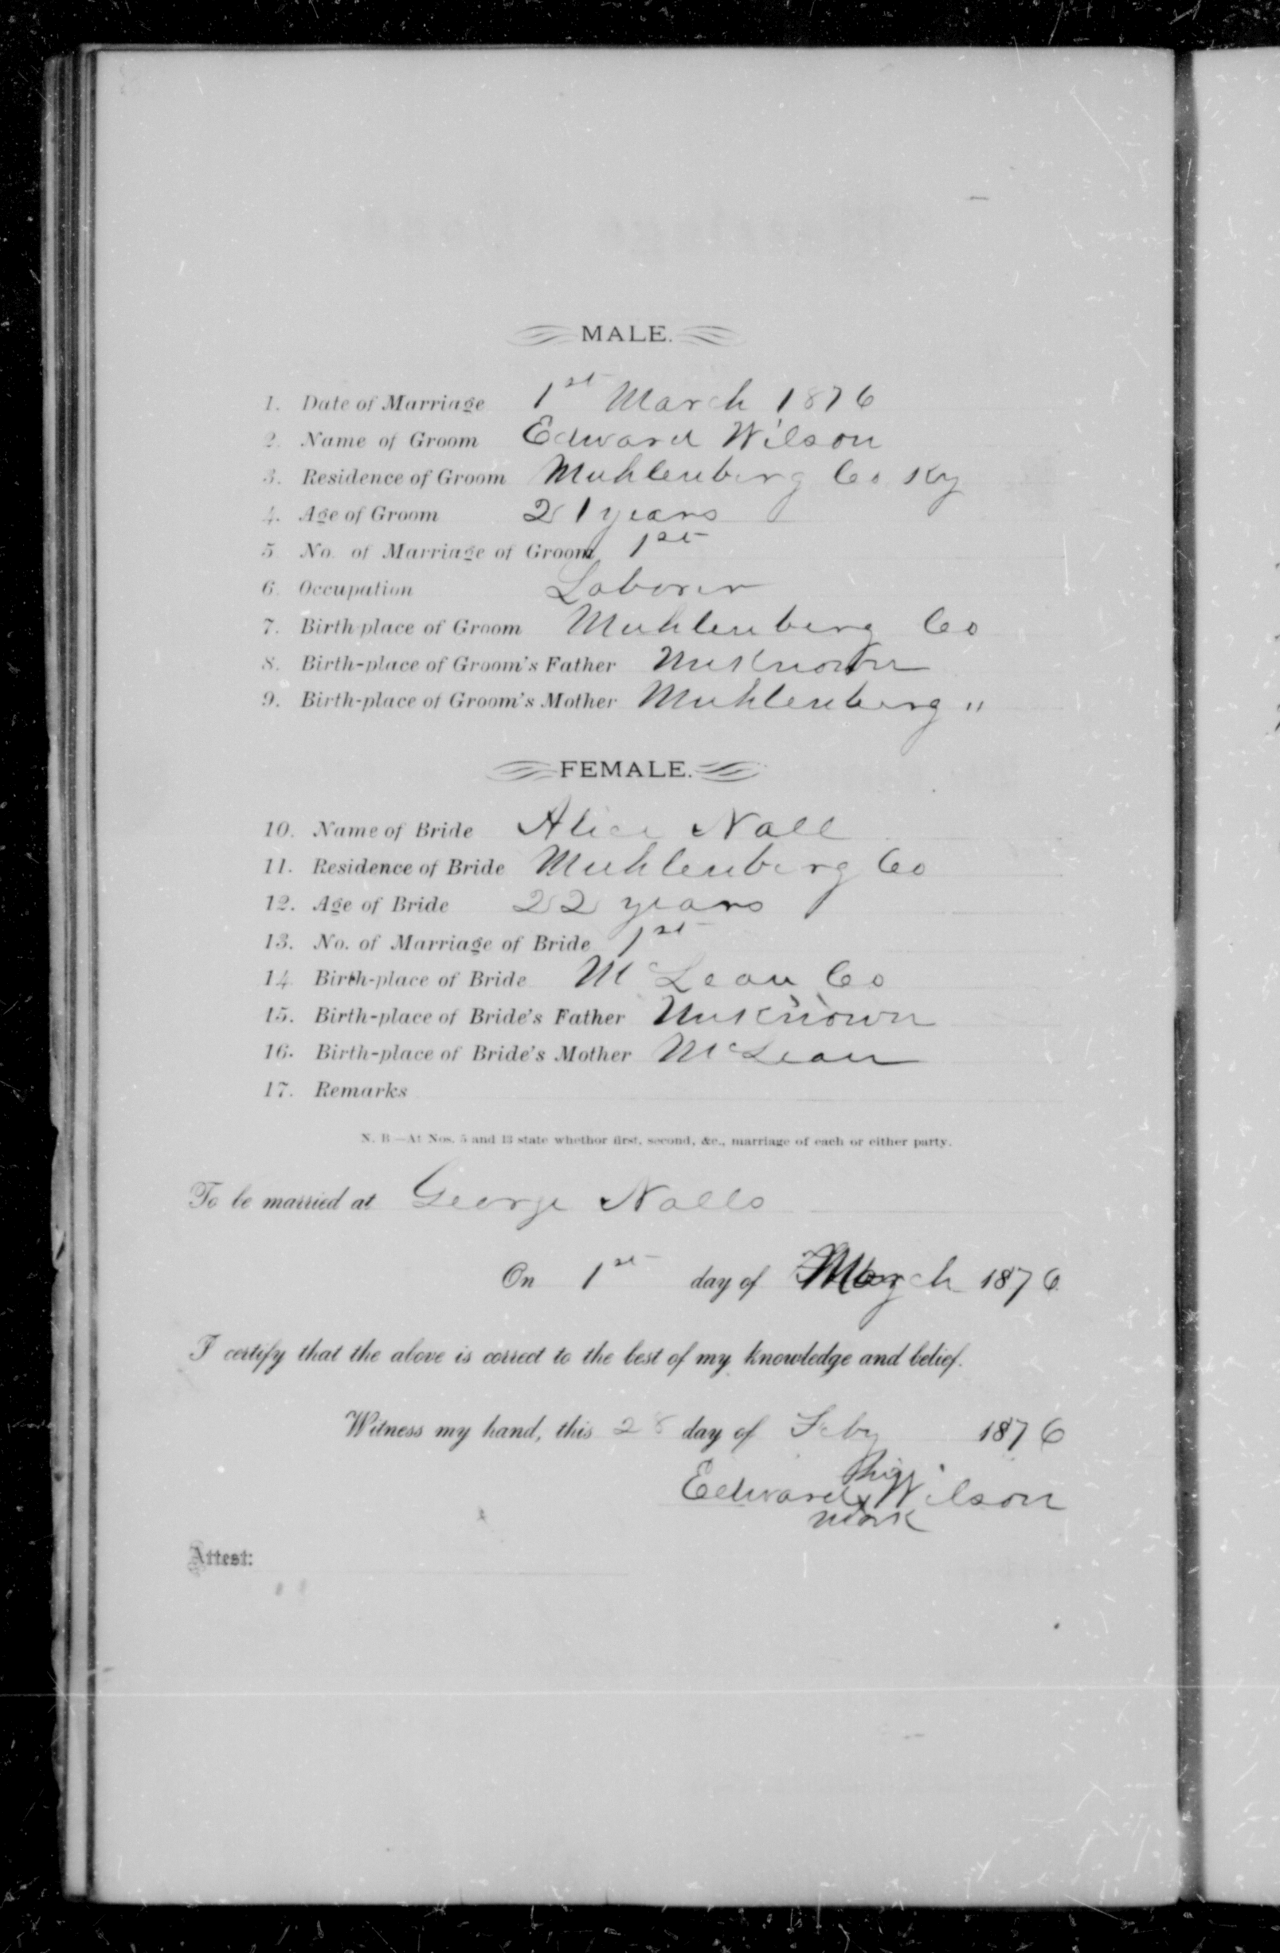 MALE.
1. Date of Marriage 1st March 1876
2. Name of Groom Edward Wilson
3. Residence of Groom Muhlenberg Co Ky
4. Age of Groom 21 years
5 No. of Marriage of Groom 1st
6. Occupation Laborer
7. Birth-place of Groom Muhlenberg Co
8. Birth-place of Groom's Father Unknown
9. Birth-place of Groom's Mother Muhlenberg "
FEMALE.
10. Name of Bride Alice Nall
11. Residence of Bride Muhlenberg Co
12. Age of Bride 22 years
13. No. of Marriage of Bride 1st
14 Birth-place of Bride McLean Co
15. Birth-place of Bride's Father Unknown
16. Birth-place of Bride's Mother McLean
17. Remarks
N. B—At Nos. 5 and 13 state whethor first, second, &c., marriage of each or either party.
To be married at George Nalls
On 1st day of March 1876
I certify that the above is correct to the best of my knowledge and belief.
Witness my hand, this 28 day of Feby 1876
his
Edward x Wilson
mark
Attest: